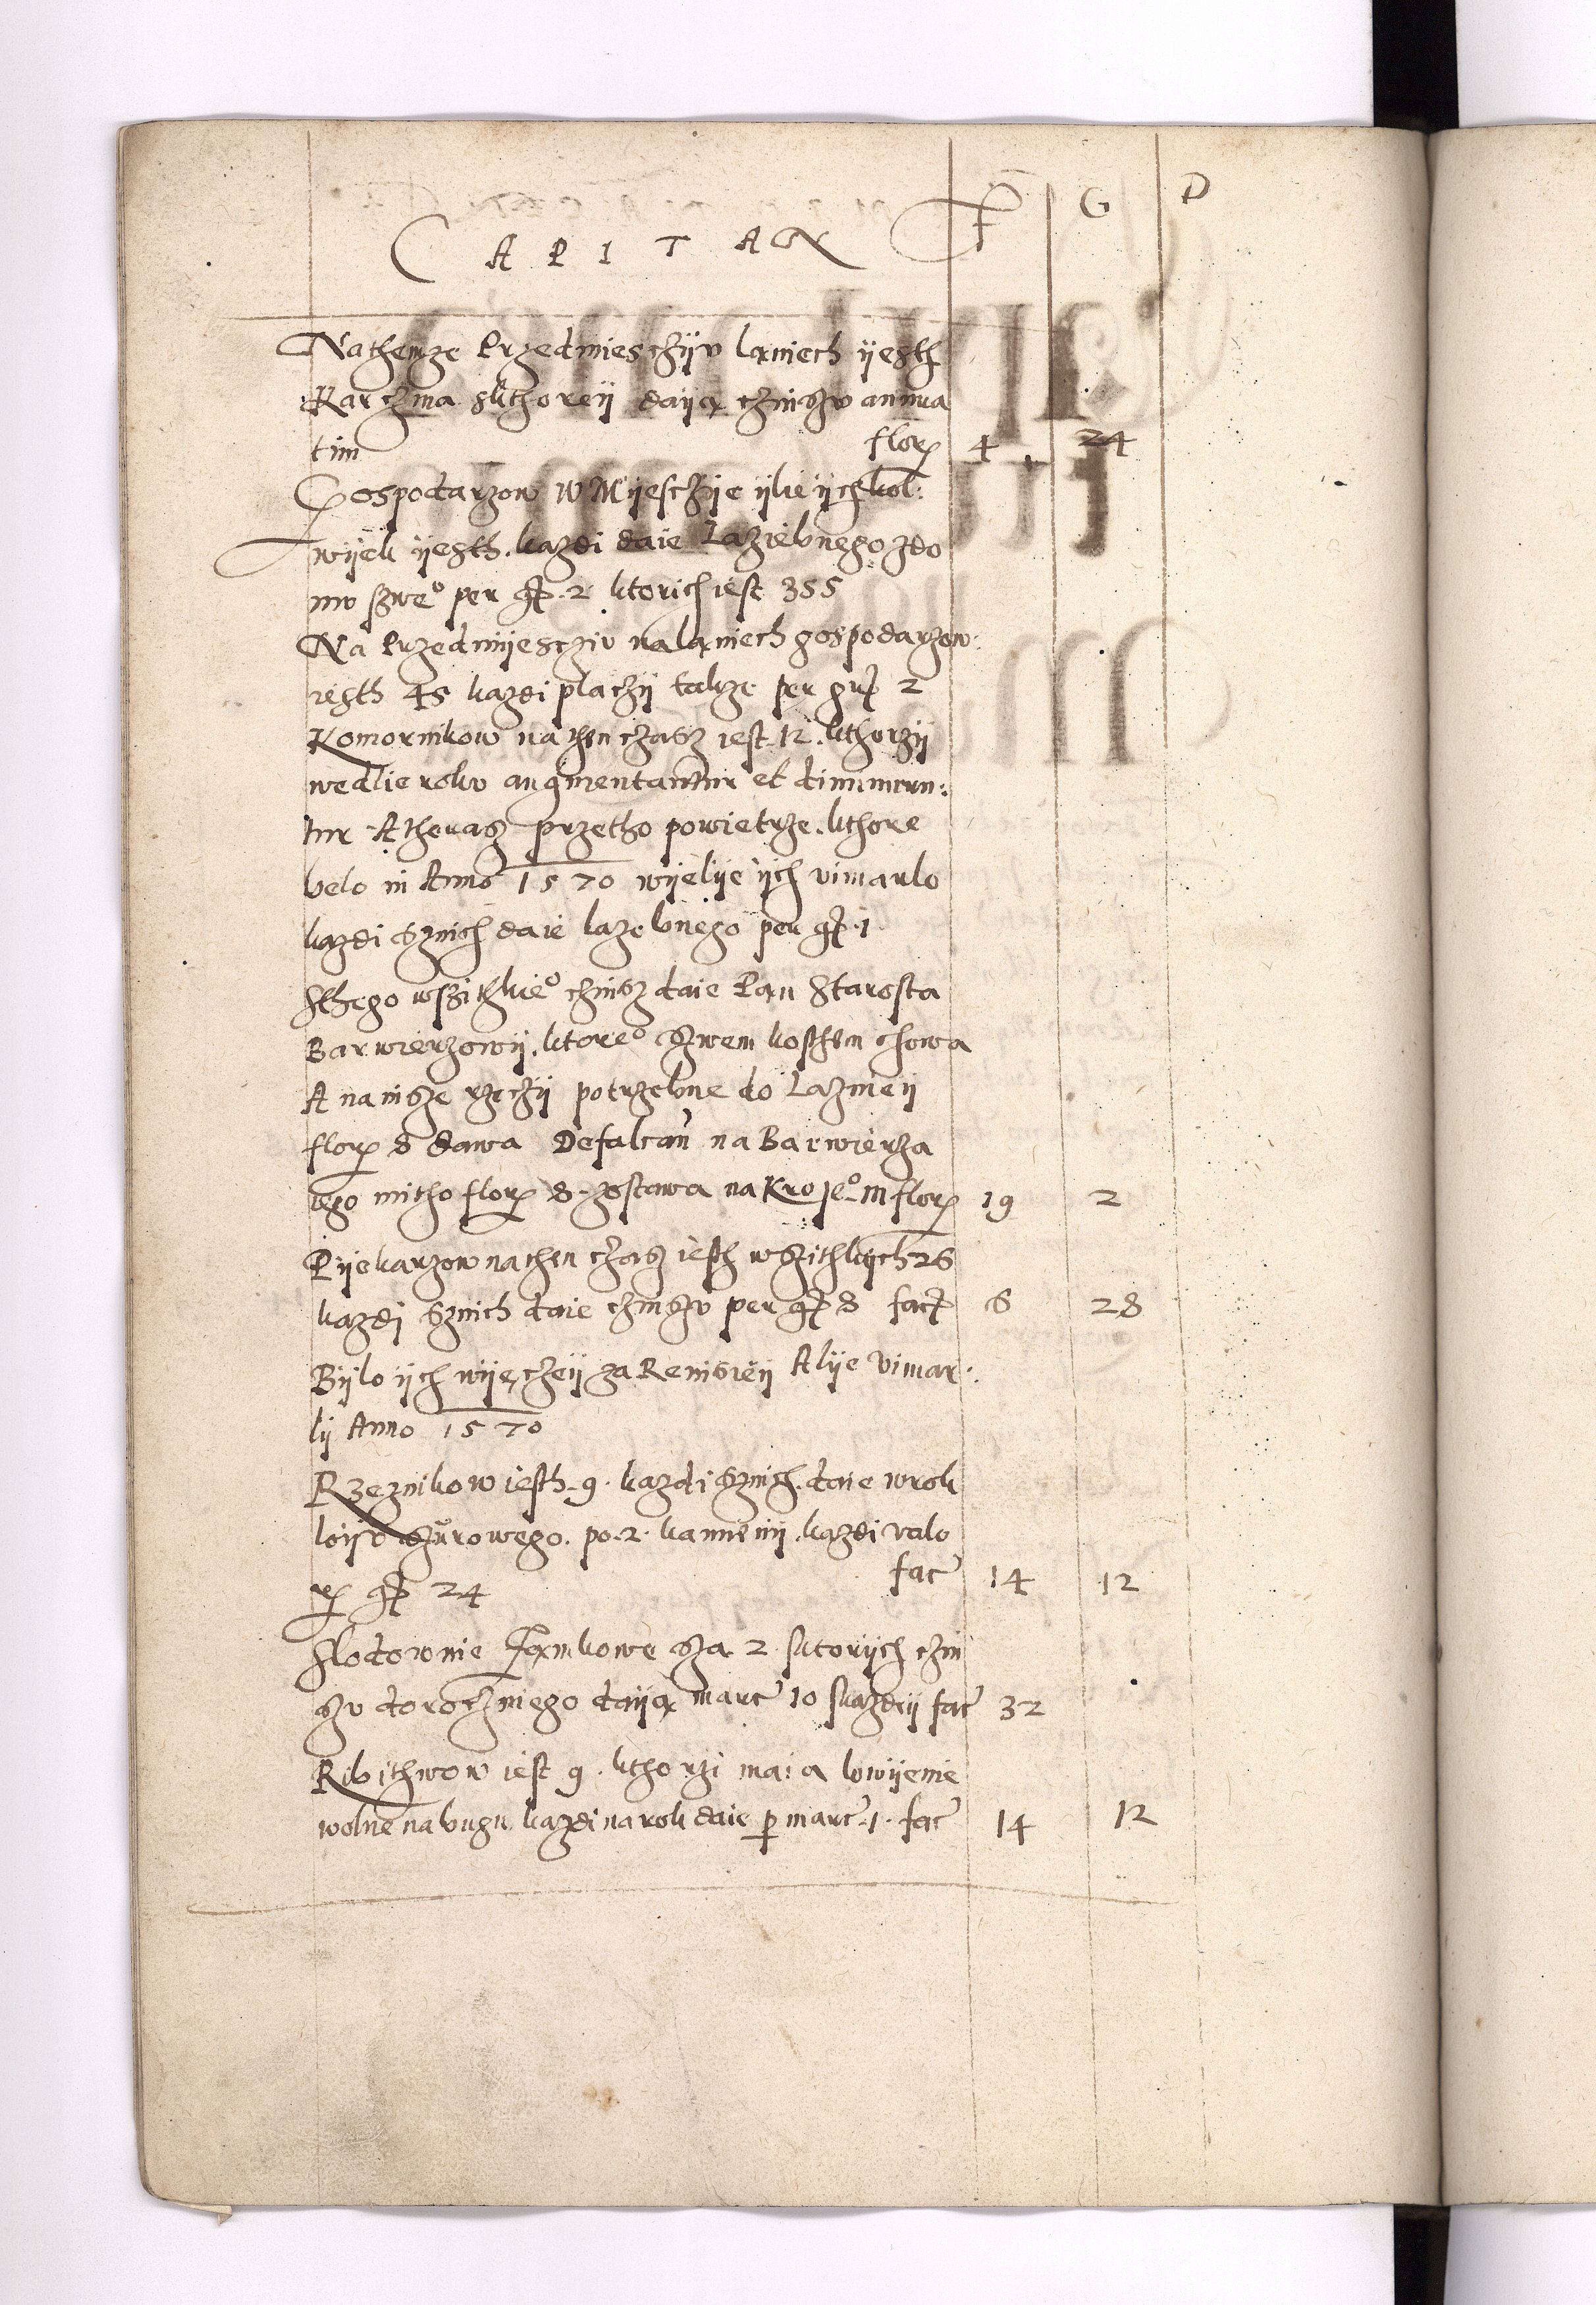 CAPITAN F G D
Na themze Przedmiesczyv laniech yesth
Karczma skthorey dayą czinszv annua
tim flor 4 24
Gospodarzow W Myesczye ylie ych kol:
wyek yesth. kazdi daie Laziebnego zdo
mv szweo per gr. 2 ktorich iest 355
Na Przedmyescziv na laniech gospodarzow
iesth 45 kazdi placzy takze per gr 2
Komornikow na then czasz iest 12. kthorzy
wedlie rokv augmentantur et diminuun:
tur A theraz przetho powietrze. kthore
belo in Anno 1570 wyelye ych vimarlo
kazdi sznich daie lazebnego per gr. 1
Sthego wszitkieo czinsz daie Pan Starosta
Barwierzowy. ktoreo szwem kosthem chowa
A na insze rzeczy potrzebne do Lazniey
flor 8 dawa Defalcan na Barwierza
ego mitho flor 8. zostawa na Kro Jeo M flor 19 2
Pyekarzow na then czasz iesth wszithkych 26
kazdi sznich daie czinszv per gr 8 fact 6 28
Bylo ych wyęczey za Reuisiey Alye vimar:
ly Anno 1570
Rzeznikow iesth. 9. kazdi sznich. daie wrok
loyv szurowego. po. 2. kamieny. kazdi valo
per gr 24 fac 14 12
Slodownie Zamkowe sza 2 sktorych czin
szv dorocznego dayą marc 10 skazdey fac 32
Ribithwow iest 9. kthorzi maia lowyenie
wolne na bugu kazdi na rok daie per marc. 1. fac 14 12